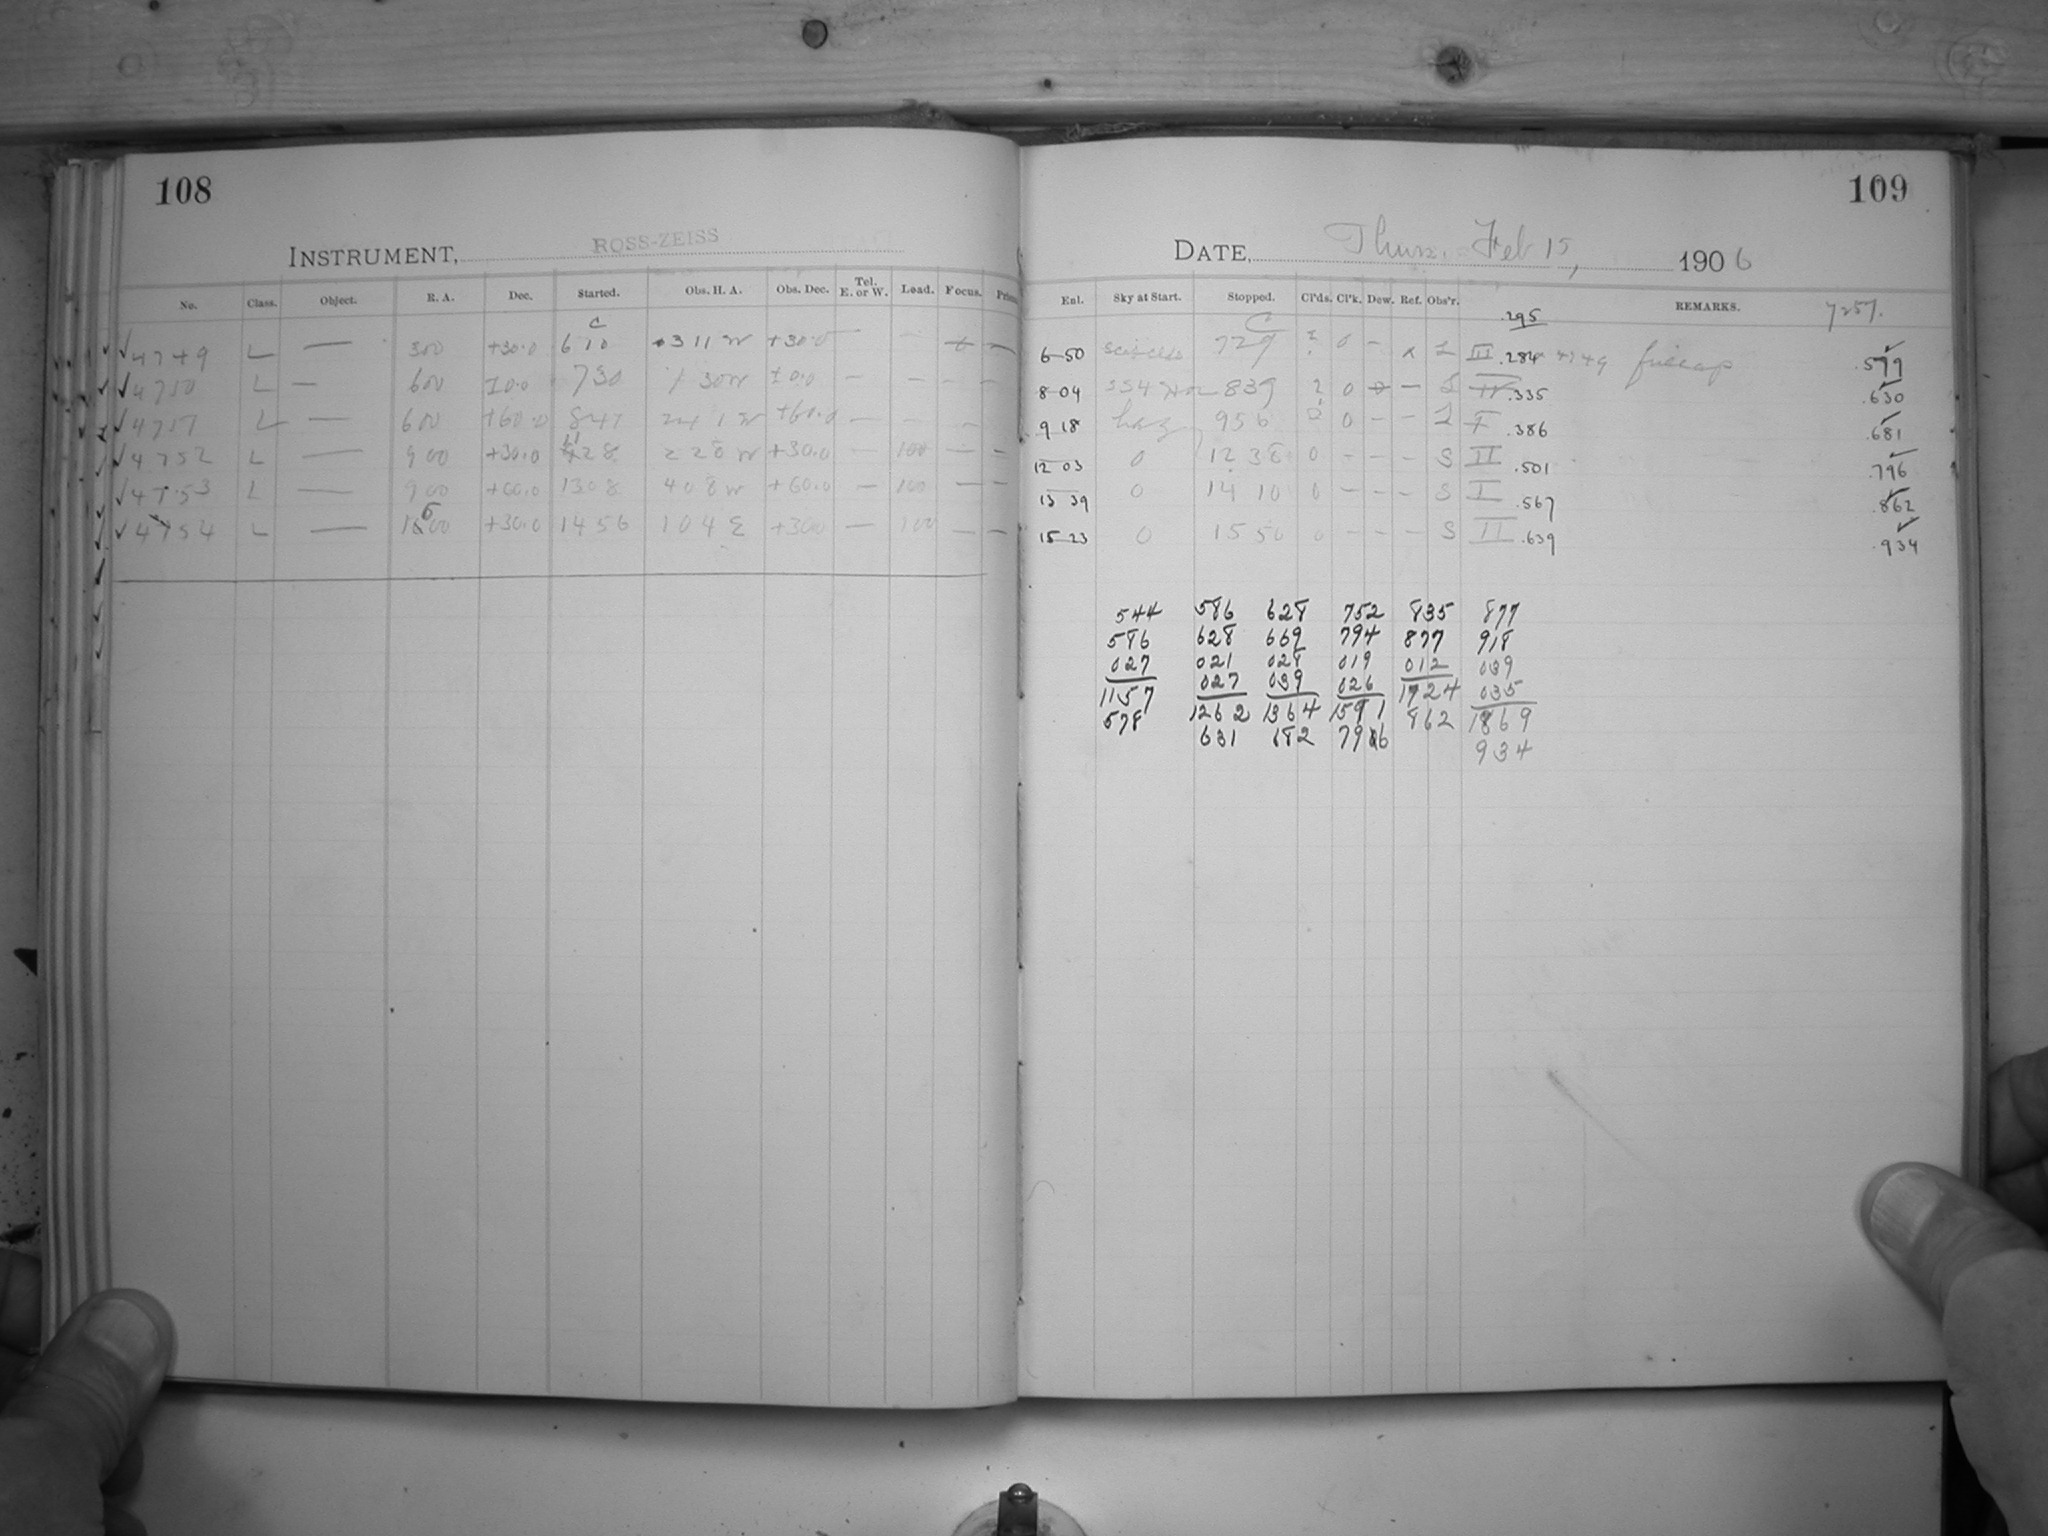 108
INSTRUMENT, ROSS-ZEISS
No. Class. Object. R. A. Dec. Started. Obs. H. A. Obs. Dec. Tel. E. or W. Load. Focus.
C
✓4749 L — 300 +30.0 6 10 311 W +30.0 —
✓4750 L — 600 ±0.0 730 1 30 W ±0.0 — — — —
✓4751 L — 600 +60.0 841 241 W +60.0 — — — —
✓4752 L — 900 +30.0 1128 228 W +30.0 — 100 — —
✓4753 L — 900 +60.0 1308 408 W +60.0 — 100 — —
✓4754 L — 1600 +30.0 1456 104 E +30.0 — 100 — —
109
DATE, Thurs. Feb 15, 1906
Enl. Sky at Start. Stopped. Cl'ds. Cl'k. Dew. Ref. Obs'r. REMARKS. 7257.
.295
C
6 50 729 2 0 — L III .284 4749 .577
8 04 839 2 0 — L .335 .630
9 18 haz 956 2 0 — — L .386 .681
12 03 0 12 38 0 — — — S II .501 .796
13 39 0 14 10 0 — — — S I .567 .862
15 23 0 15 50 0 — — — S II .639 .934
544 586 628 752 835 877
586 628 669 794 877 918
027 021 028 019 012 039
1157 027 039 026 1724 035
578 1262 1364 1591 862 1869
631 682 796 934